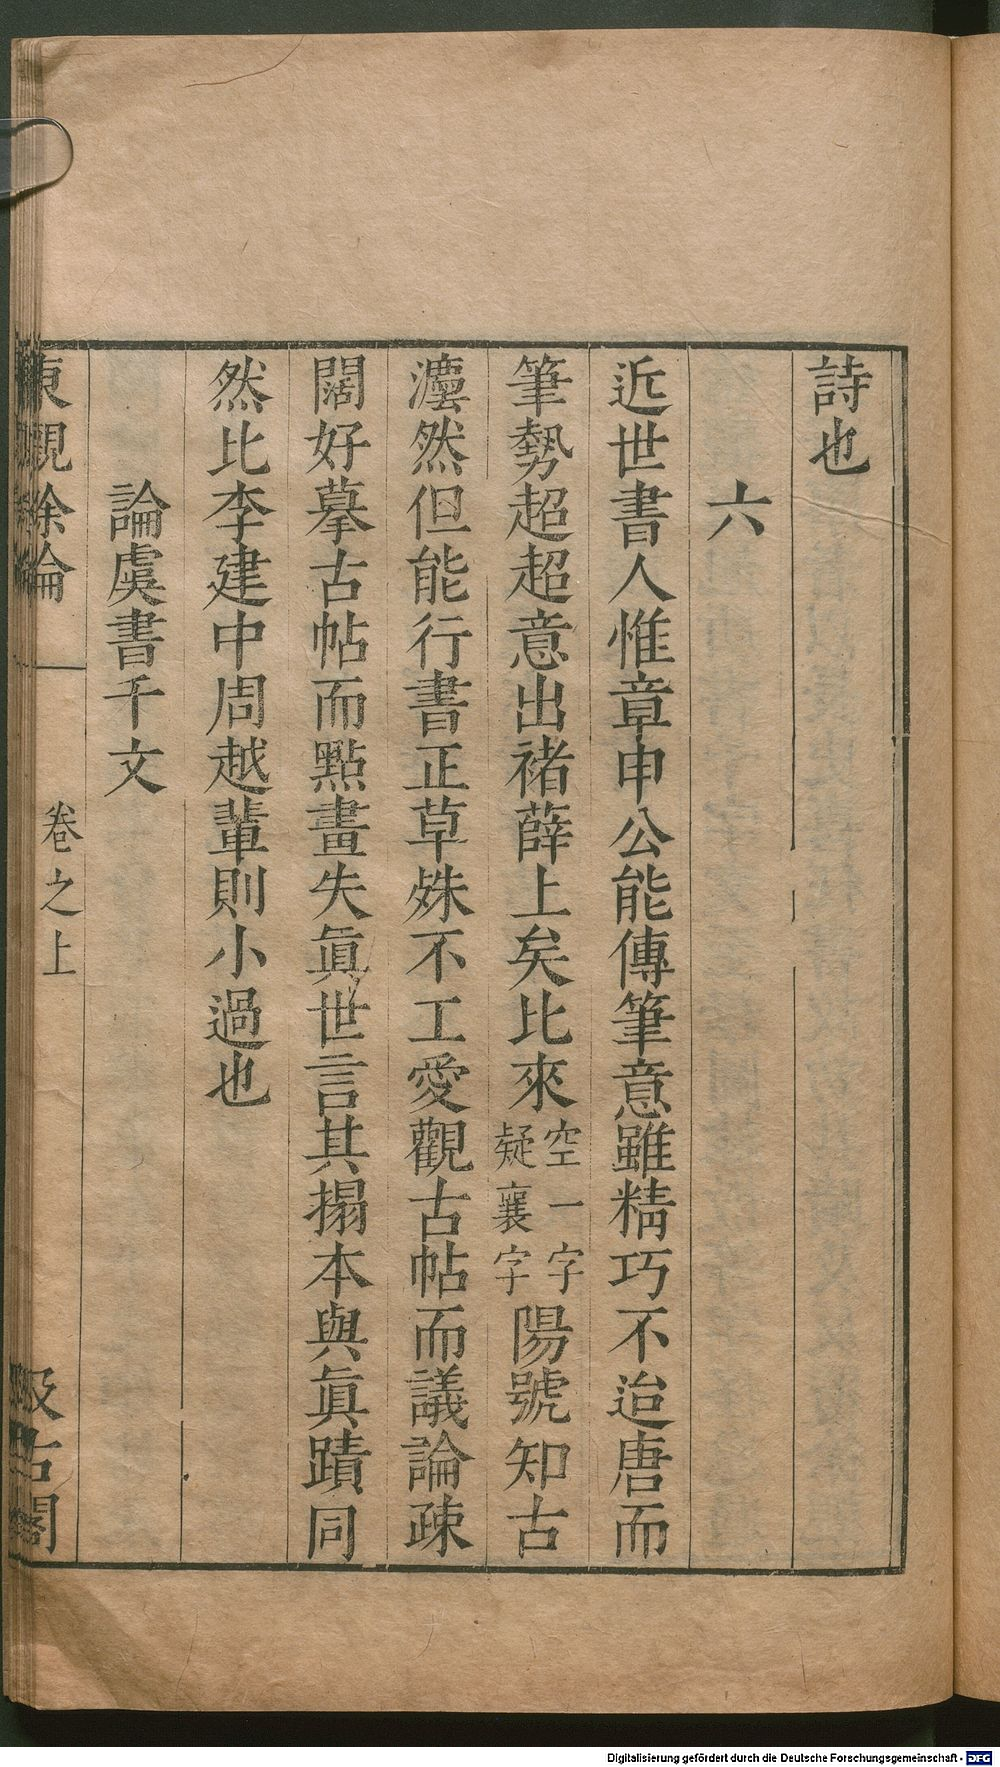 詩也
六
近世書人惟章申公能傳筆意雖精巧不迨唐而
筆勢超超意出褚薛上矣比來空一字疑襄字陽號知古
灋然但能行書正草殊不工愛觀古帖而議論疎
闊好摹古帖而點畫失眞世言其搨本與眞蹟同
然比李建中周越輩則小過也
論虞書千文
東觀餘論
卷之上
汲古閣
Digitalisierung gefördert durch die Deutsche Forschungsgemeinschaft - DFG